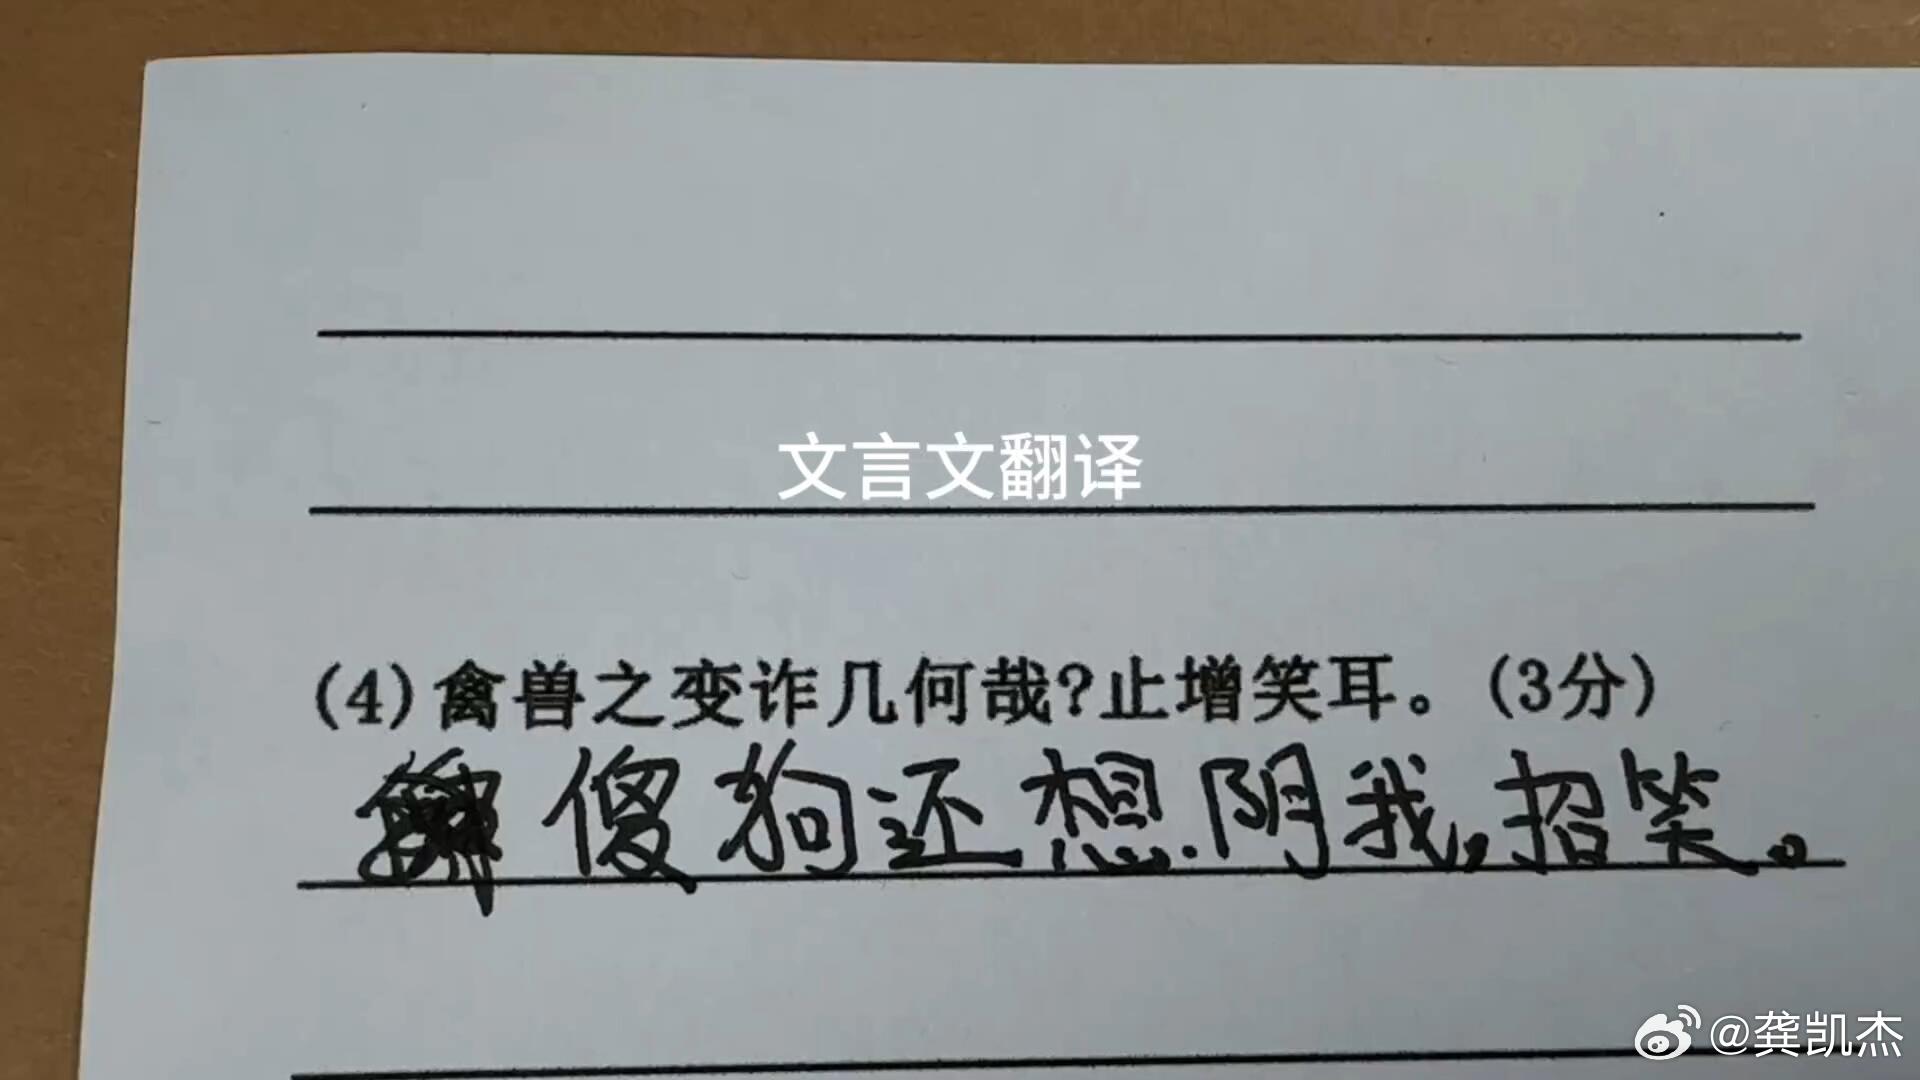 文言文翻译
(4)禽兽之变诈几何哉?止增笑耳。(3分)
傻狗还想阴我,招笑。
@龚凯杰